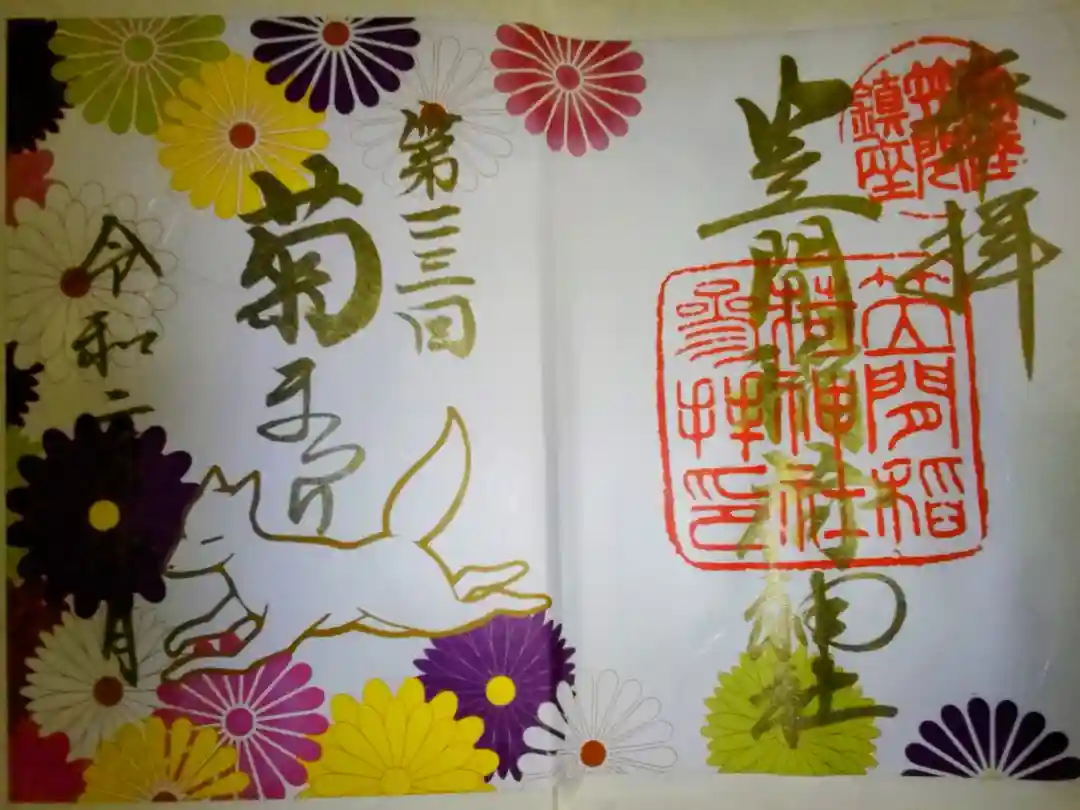 奉拝
常陸
笠間
鎮座
笠間稲荷神社
笠間稲
荷神社
参拝印
第一一二回
菊まつり
令和元 月